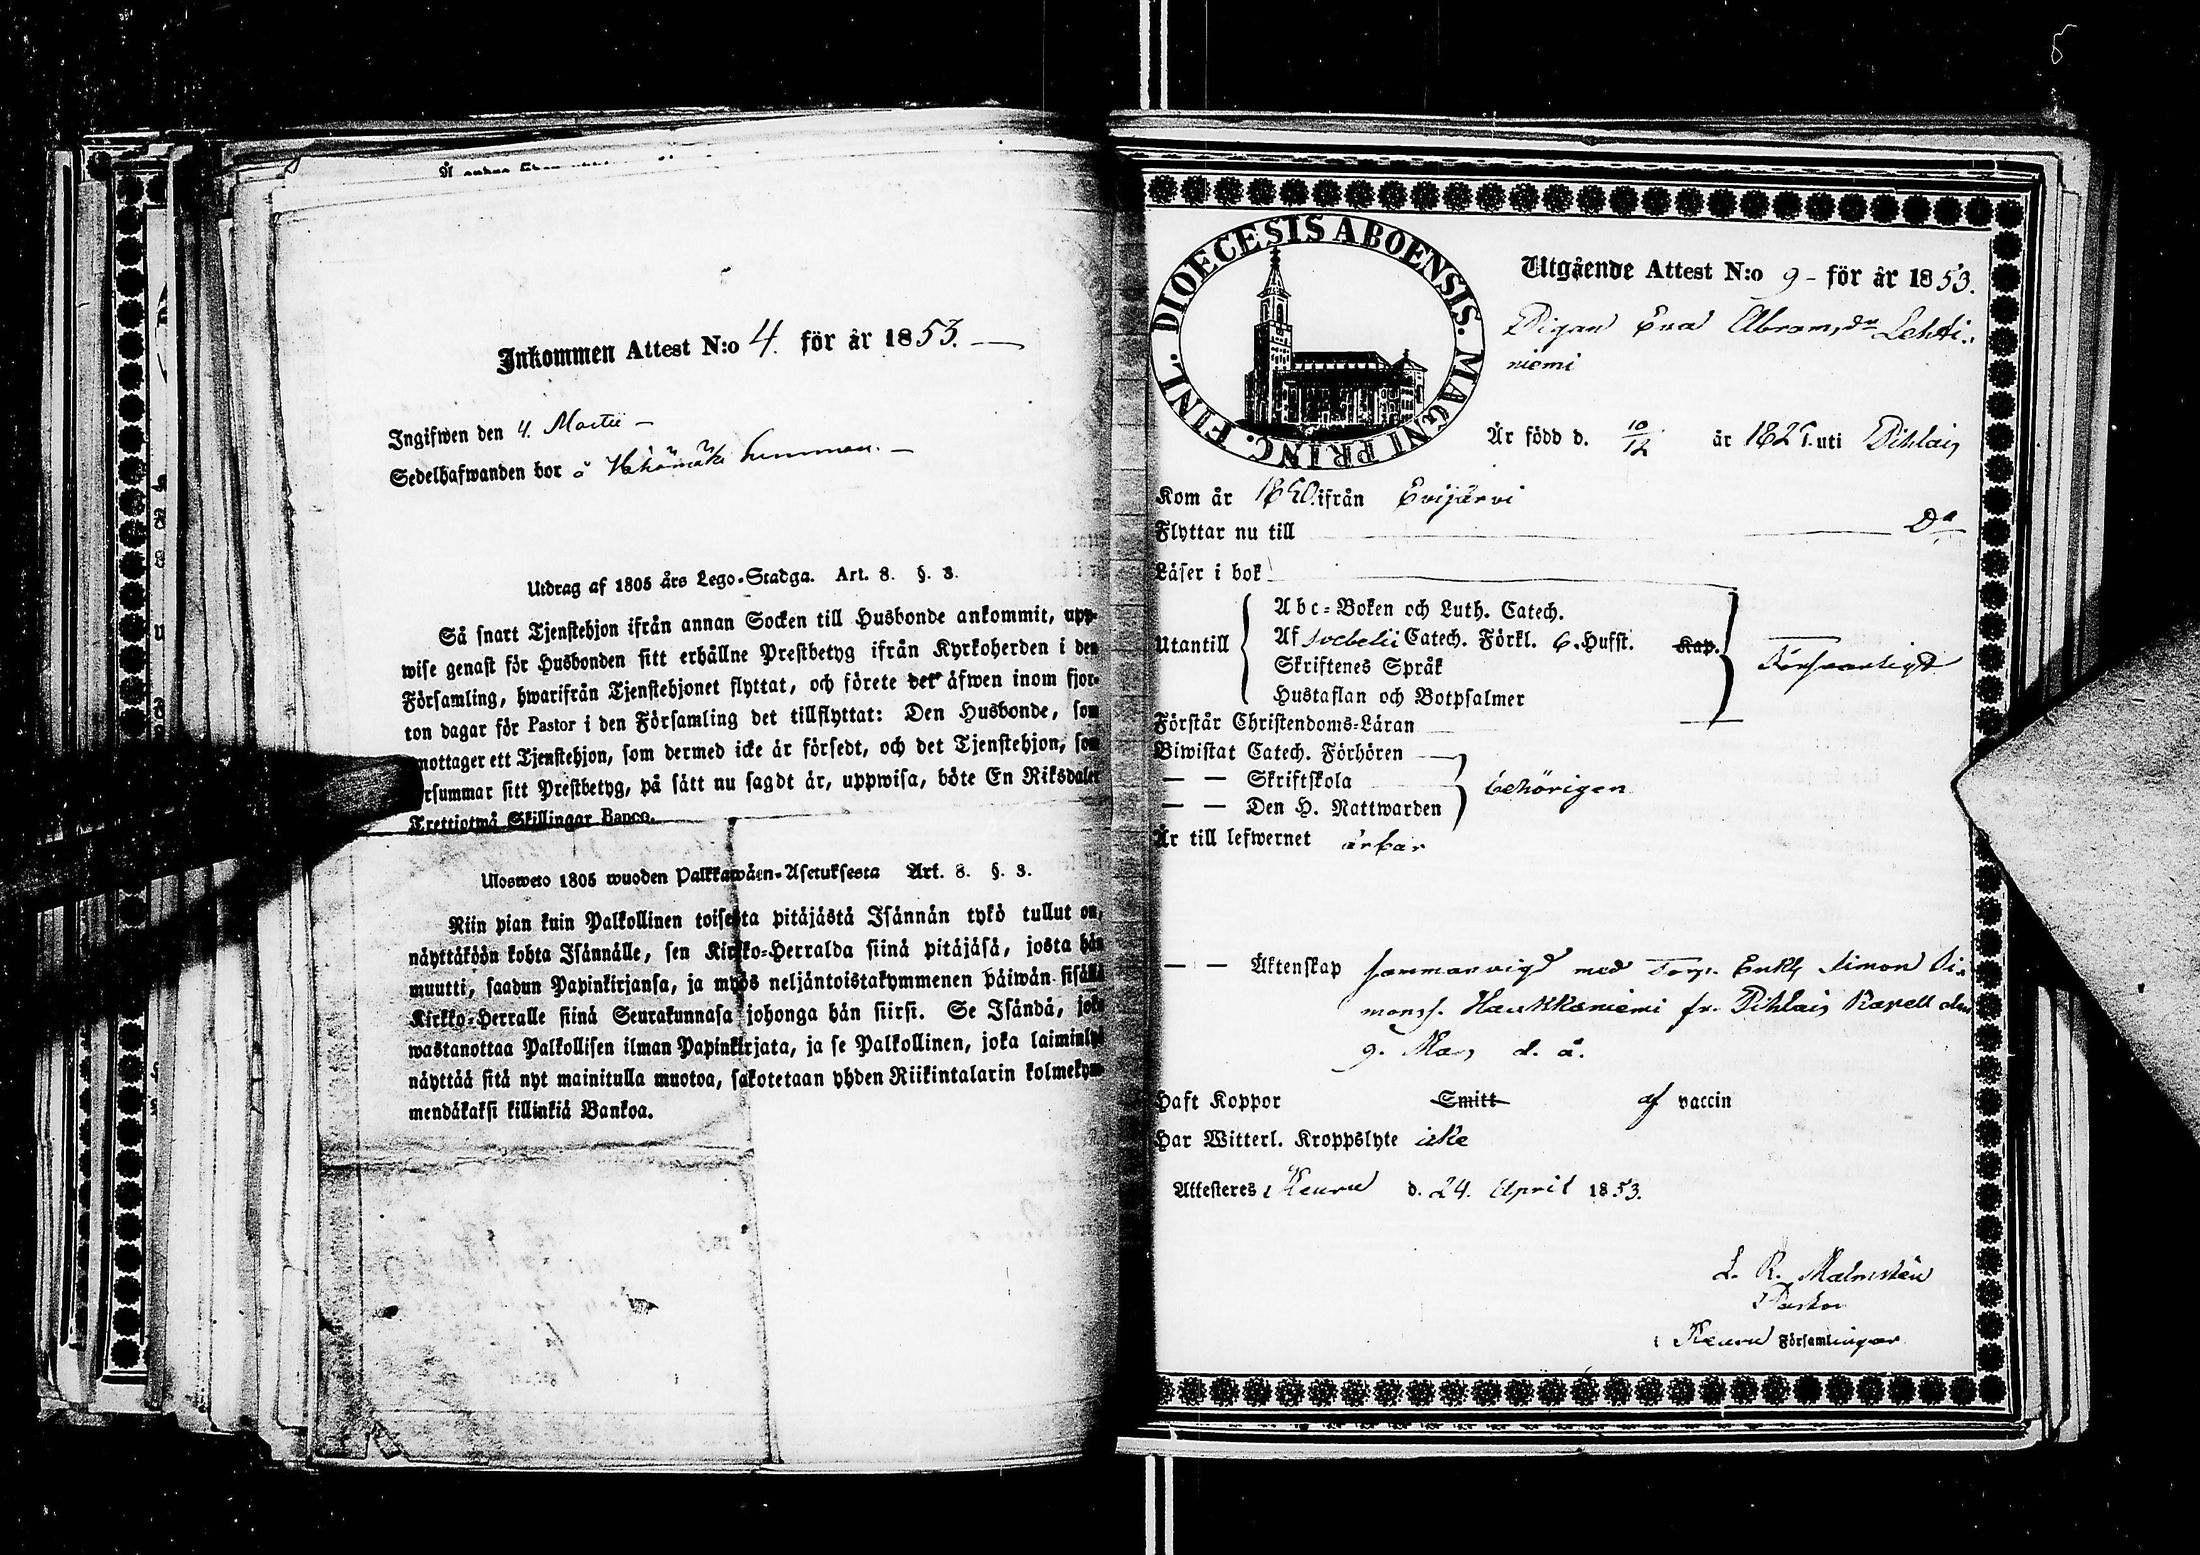 5
Inkommen Attest N:o 4. för år 1853.
Ingifwen den 4. Martii
Sedelhafwanden bor å
Utdrag af 1805 års Lego-Stadga. Art. 8. §. 3.
Så snart Tjenstehjon ifrån annan Socken till Husbonde ankommit, upp-
wise genast för Husbonden sitt erhållne Prestbetyg ifrån Kyrkoherden i den
Församling, hwarifrån Tjenstehjonet flyttat, och förete det äfwen inom fjor-
ton dagar för Pastor i den Församling det tillflyttat: Den Husbonde, som
mottager ett Tjenstehjon, som dermed icke är försedt, och det Tjenstehjon, som
rsummar sitt Prestbetyg, på sätt nu sagdt är, uppwisa, böte En Riksdaler
Trettiotwå Skillingar Banco.
Ulosweto 1805 wuoden Palkkawäen-Asetuksesta Art. 8. §. 3.
Niin pian kuin Palkollinen toisesta pitäjästä Isännän tykö tullut on,
näyttäköön kohta Isännälle, sen Kirkko-Herralda siinä pitäjäsä, josta hän
muutti, saadun Papinkirjansa, ja myös neljäntoistakymmenen päiwän sisällä
Kirkko-Herralle siinä Seurakunnasa johonga hän siirsi. Se Isändä, joka
wastanottaa Palkollisen ilman Papinkirjata, ja se Palkollinen, joka laiminlyö
näyttää sitä nyt mainitulla muotoa, sakotetaan yhden Riikintalarin kolmekym-
mendäkaksi killinkiä Bankoa.
DIOECESIS ABOENSIS. MAGNI PRINC. FINL.
Utgående Attest N:o 9 för år 1853.
Pigan Eva Abramsdr Lehti-
niemi
Är född d. 10/12 år 182 uti Pihlajs
Kom år ifrån Evijärvi
Flyttar nu till Do
Läser i bok
Utantill
Abc-Boken och Luth. Catech.
Af Svebelii Catech. Förkl. 6. Hufst. Kap.
Skriftenes Språk
Hustaflan och Botpsalmer
Försvarligt
Förstår Christendoms-Läran
Biwistat Catech. Förhören
— — Skriftskola
— — Den H. Nattwarden
behörigen
Är till lefwernet ärbar
— — Äktenskap sammanvigd med Torp. Enkl. Simon Si-
monss. Haukkaniemi fr. Pihlajs Kapell den
9. Maj d. å.
Haft Koppor Smitt af vaccin
Har Witterl. Kroppslyte icke
Attesteres i Keuru d. 24. April 1853.
L. R. Malmstén
Pastor
i Keuru Församlingar